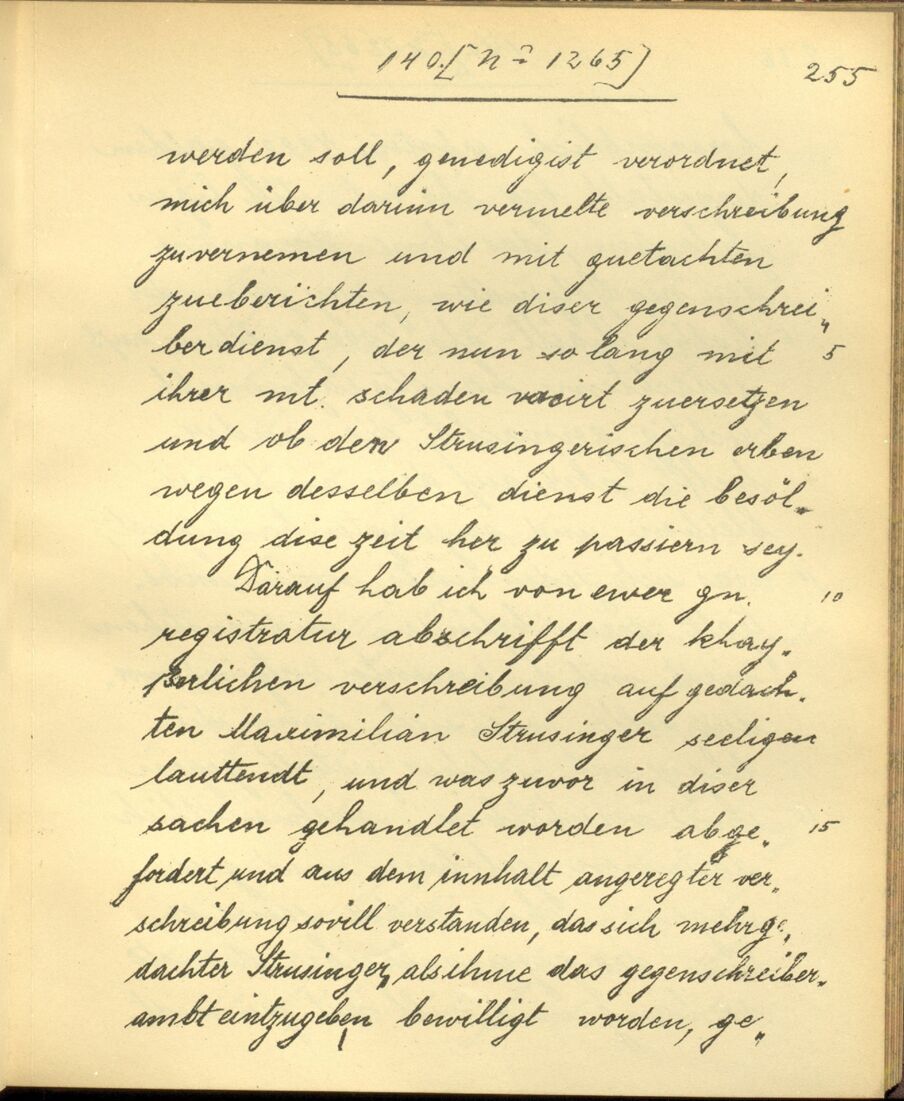 140. [N° 1265]
255
werden soll, genedigist verordnet,
mich über darinn vermelte verschreibung
zuvernemen und mit guetachten
zueberichten, wie diser gegenschrei„
berdienst, der nun so lang mit 5
ihrer mt. schaden vacirt zuersetzen
und ob den Strusingerischen erben
wegen desselben dienst die besöl„
dung dise zeit her zu passiern sey.
Darauf hab ich von ewer gn. 10
registratur abschrifft der khay„
serlichen verschreibung auf gedach„
ten Maximilian Strusinger seeligen
lauttendt, und was zuvor in diser
sachen gehandlet worden abge„ 15
fordert und aus dem innhalt angeregter ver„
schreibung sovill verstanden, das sich mehrge„
dachter Strusinger, als ihme das gegenschreiber„
ambt eintzugeben bewilligt worden, ge„